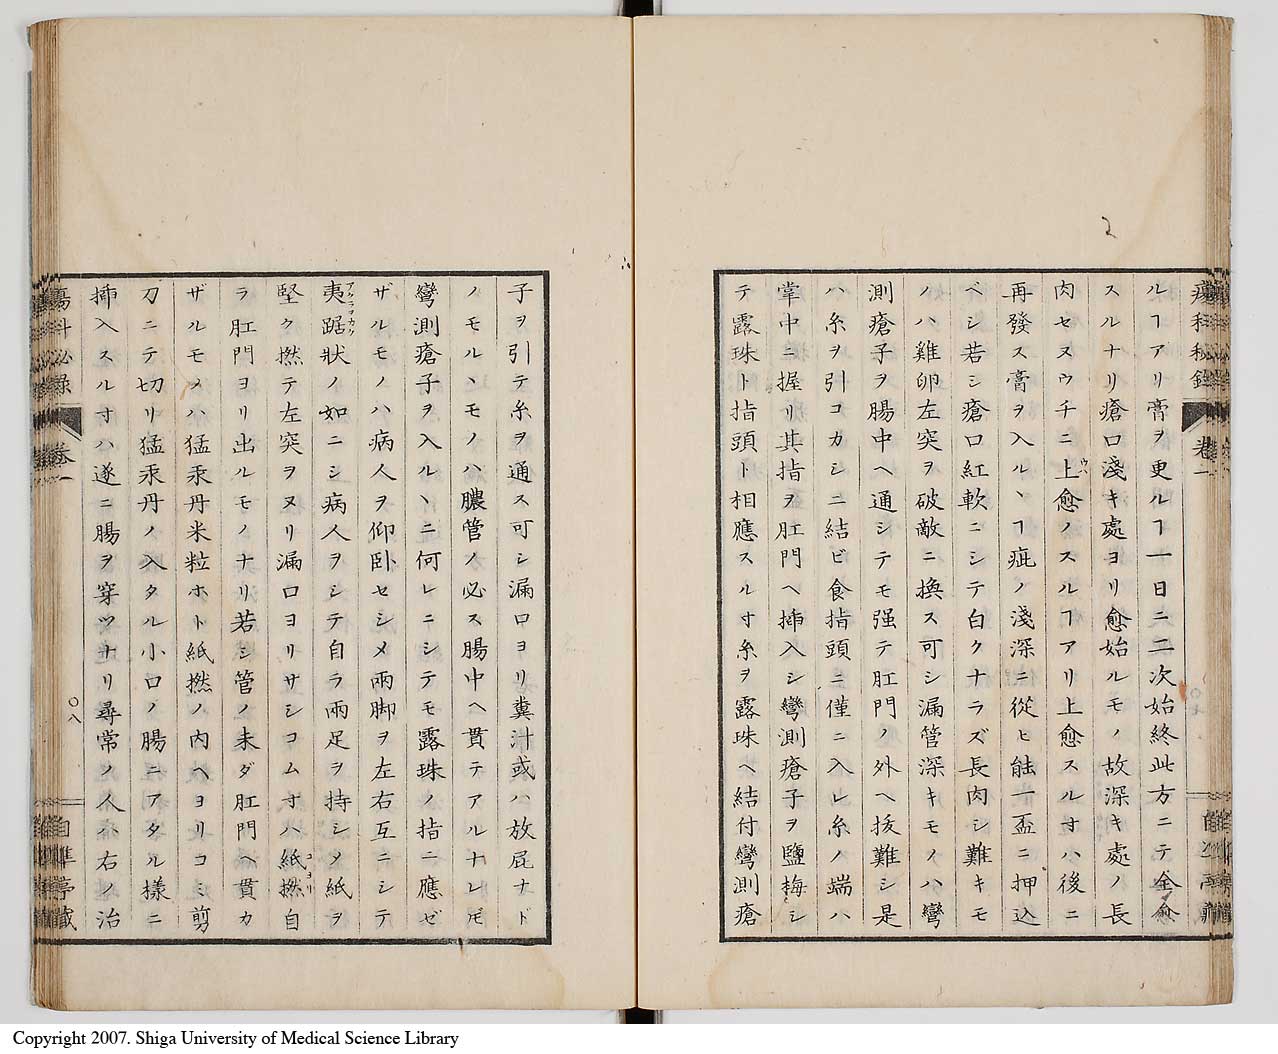 瘍科秘録 卷一
ルヿアリ膏ヲ更ルヿ一日ニ二次始終此方ニテ全愈
スルナリ瘡口淺キ處ヨリ愈始ルモノ故深キ處ノ長
肉セヌウチニ上愈ノスルヿアリ上愈スルオハ後ニ
再發ス膏ヲ入ルヽヿ疵ノ淺深ニ從ヒ能一盃ニ押込
ベシ若シ瘡口紅軟ニシテ白クナラズ長肉シ難キモ
ノハ雞卵左突ヲ破敵ニ換ス可シ漏管深キモノハ彎
測瘡子ヲ腸中ヘ通シテモ强テ肛門ノ外ヘ拔難シ是
ハ糸ヲ引コカシニ結ビ食指頭ニ僅ニ入レ糸ノ端ハ
掌中ニ握リ其指ヲ肛門ヘ揷入シ彎測瘡子ヲ鹽梅シ
テ露珠ト指頭ト相應スル寸糸ヲ露珠ヘ結付彎測瘡
子ヲ引テ糸ヲ通ス可シ漏口ヨリ糞汁或ハ放屁ナド
ノモルヽモノハ膿管ノ必ス腸中ヘ貫テアルナレ𪜈
彎測瘡子ヲ入ルヽニ何レニシテモ露珠ノ指ニ應ゼ
ザルモノハ病人ヲ仰卧セシメ兩脚ヲ左右互ニシテ
夷踞狀ノ如ニシ病人ヲシテ自ラ兩足ヲ持シメ紙ヲ
堅ク撚テ左突ヲヌリ漏口ヨリサシコムオハ紙撚自
ラ肛門ヨリ出ルモノナリ若シ管ノ未ダ肛門ヘ貫カ
ザルモノハ猛汞丹米粒ホト紙撚ノ内ヘヨリコミ剪
刀ニテ切リ猛汞丹ノ入タル小口ノ腸ニアタル樣ニ
揷入スルオハ遂ニ腸ヲ穿ツナリ尋常ノ人ハ右ノ治
瘍科祕錄 卷一
〇八
自準亭藏
Copyright 2007. Shiga University of Medical Science Library